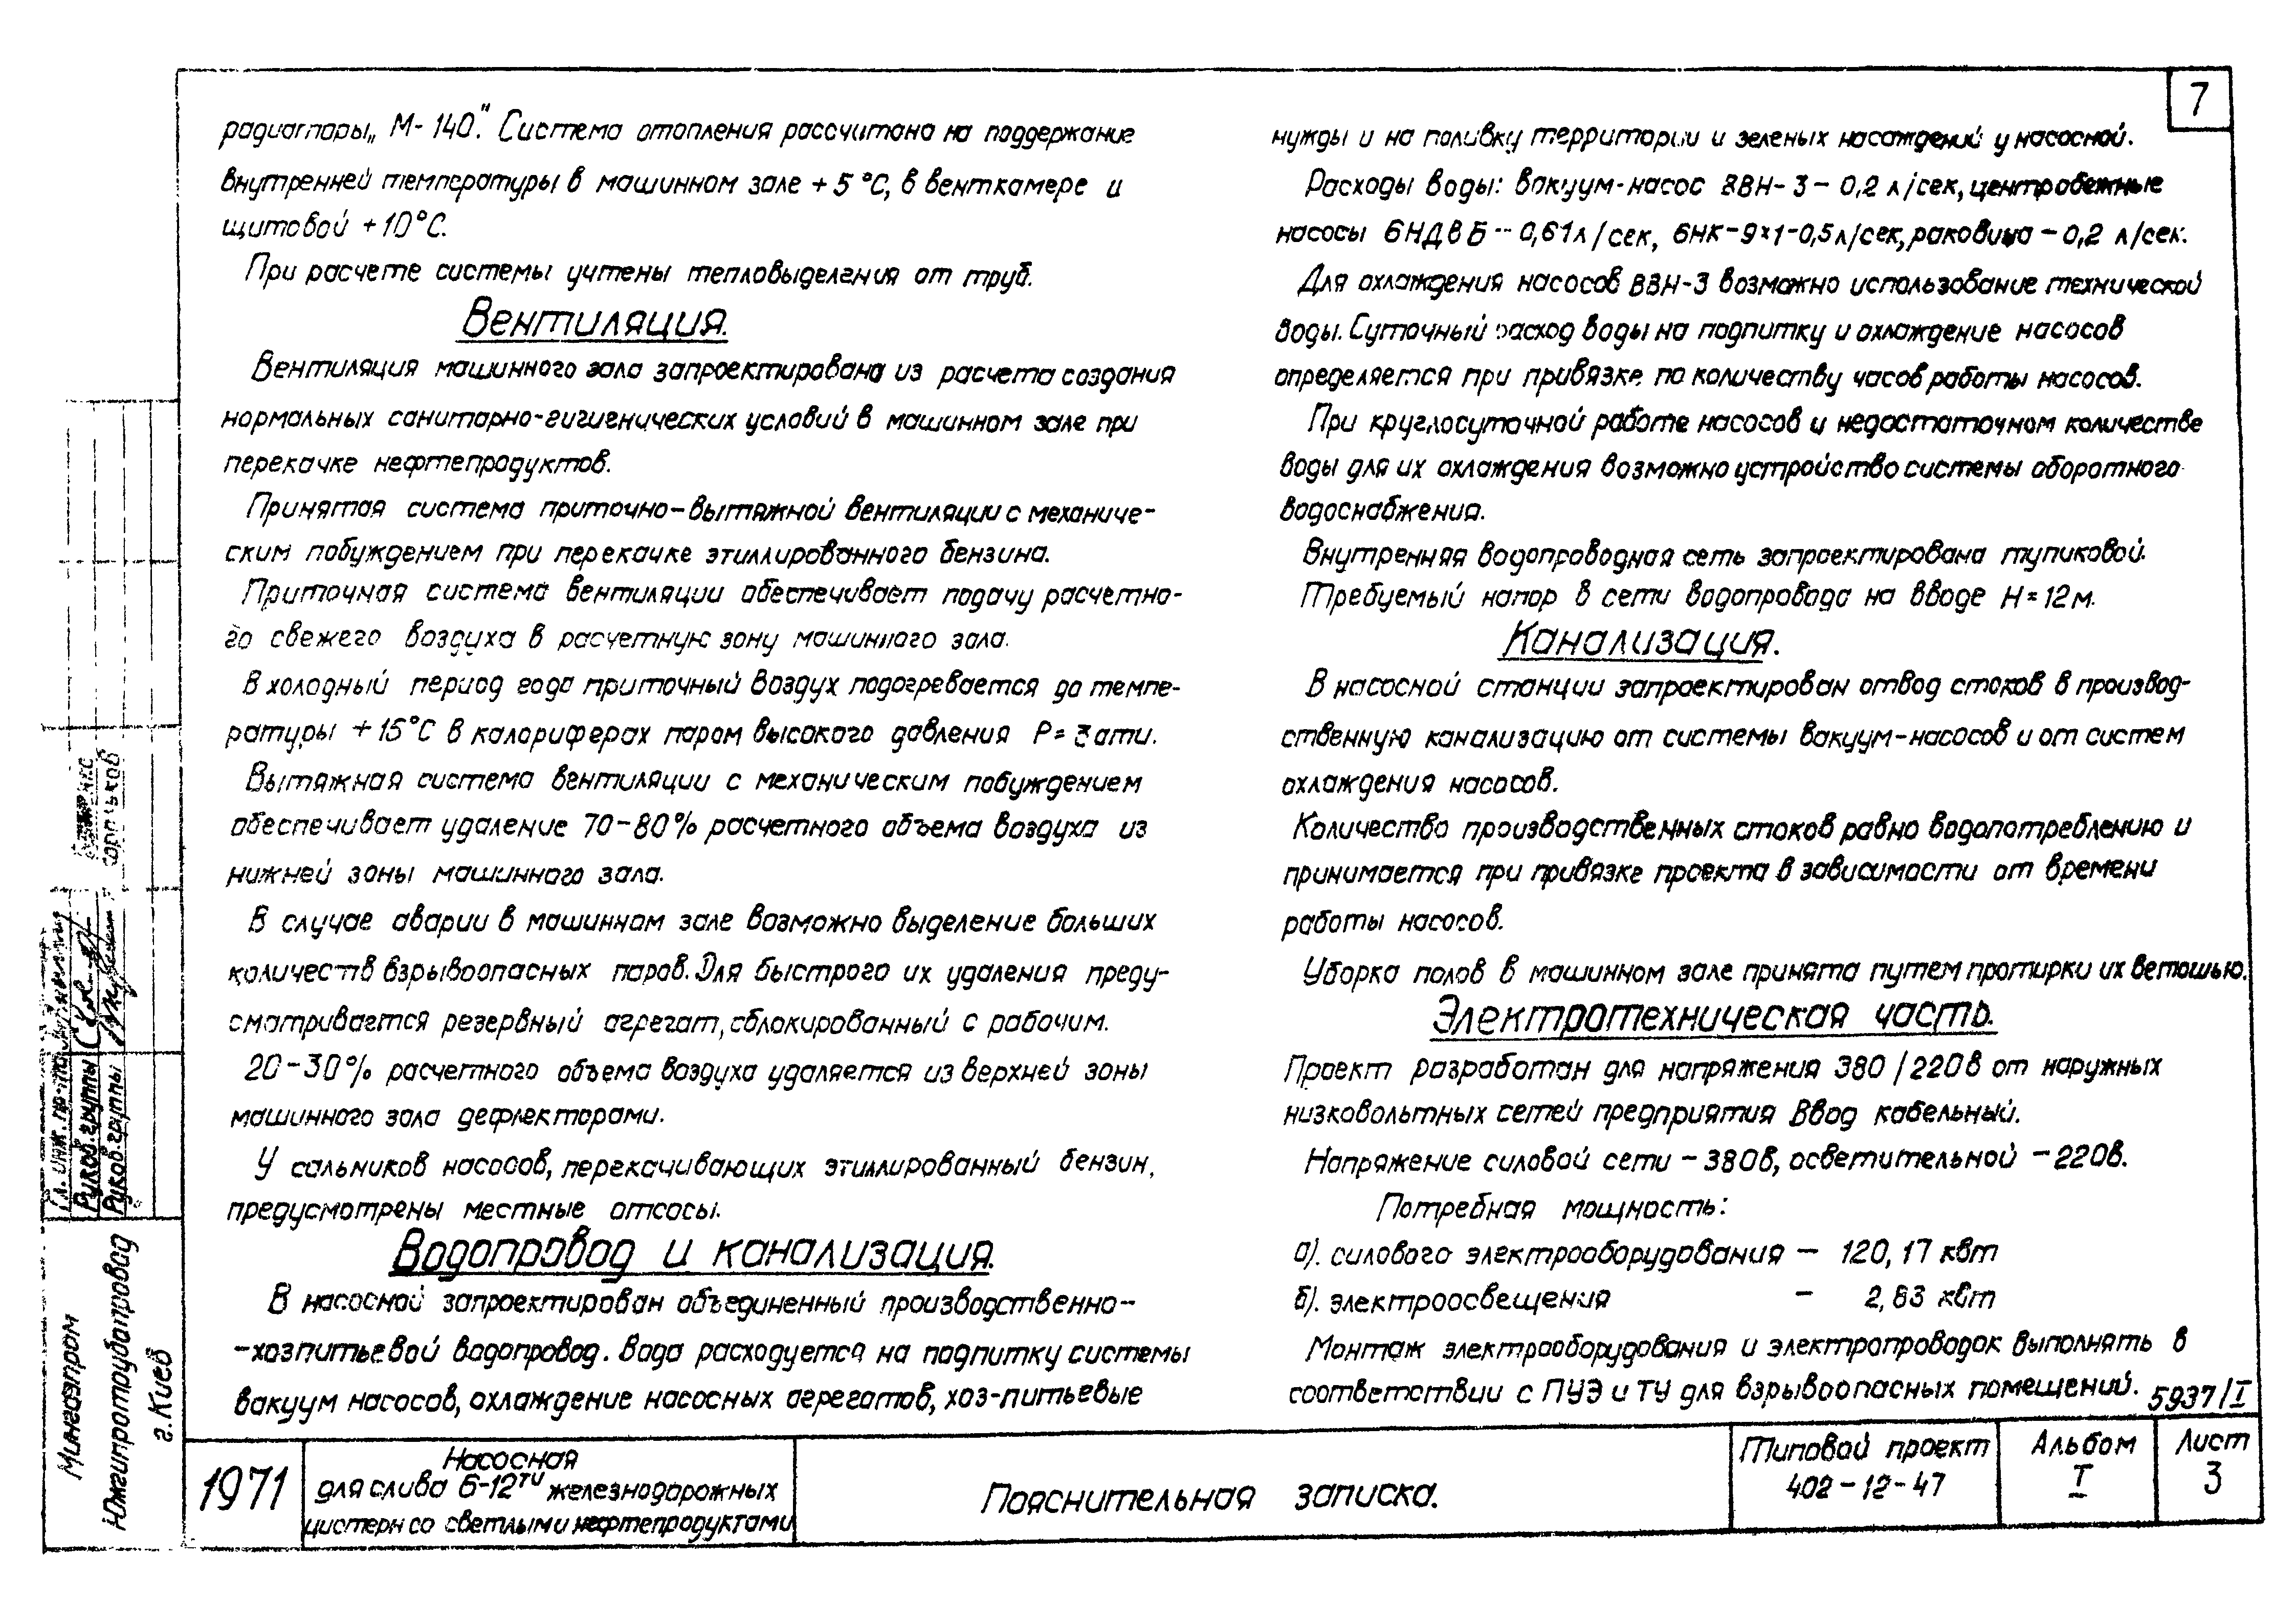 7
радиаторы„ М-140." Система отопления рассчитана на поддержание
внутренней температуры в машинном зале +5°С, в венткамере и
щитовой +10°С.
При расчете системы учтены тепловыделения от труб.
Вентиляция.
Вентиляция машинного зала запроектирована из расчета создания
нормальных санитарно-гигиенических условий в машинном зале при
перекачке нефтепродуктов.
Принятая система приточно-вытяжной вентиляции с механиче-
ским побуждением при перекачке этиллированного бензина.
Приточная система вентиляции обеспечивает подачу расчетно-
го свежего воздуха в расчетную зону машинного зала.
В холодный период года приточный воздух подогревается до темпе-
ратуры +15°С в калориферах паром высокого давления Р= ати.
Вытяжная система вентиляции с механическим побуждением
обеспечивает удаление 70-80% расчетного объема воздуха из
нижней зоны машинного зала.
В случае аварии в машинном зале возможно выделение больших
количеств взрывоопасных паров. Для быстрого их удаления преду-
сматривается резервный агрегат, сблокированный с рабочим.
20-30% расчетного объема воздуха удаляется из верхней зоны
машинного зала дефлекторами.
У сальников насосов, перекачивающих этиллированный бензин,
предусмотрены местные отсосы.
Водопровод и канализация.
В насосной запроектирован объединенный производственно-
-хозпитьевой водопровод. Вода расходуется на подпитку системы
вакуум насосов, охлаждение насосных агрегатов, хоз-питьевые
нужды и на поливку территории и зеленых насаждений у насосной.
Расходы воды: вакуум-насос ВВН-3 - 0,2 л/сек, центробежные
насосы 6НДВБ - 0,61л/сек, 6НК-9×1-0,5л/сек, раковина - 0,2 л/сек.
Для охлаждения насосов ВВН-3 возможно использование технической
воды. Суточный расход воды на подпитку и охлаждение насосов
определяется при привязке по количеству часов работы насосов.
При круглосуточной работе насосов и недостаточном количестве
воды для их охлаждения возможно устройство системы оборотного
водоснабжения.
Внутренняя водопроводная сеть запроектирована тупиковой.
Требуемый напор в сети водопровода на вводе Н=12м.
Канализация.
В насосной станции запроектирован отвод стоков в производ-
ственную канализацию от системы вакуум-насосов и от систем
охлаждения насосов.
Количество производственных стоков равно водопотреблению и
принимается при привязке проекта в зависимости от времени
работы насосов.
Уборка полов в машинном зале принята путем протирки их ветошью.
Электротехническая часть.
Проект разработан для напряжения 380/220в от наружных
низковольтных сетей предприятия Ввод кабельный.
Напряжение силовой сети - 380в, осветительной - 220в.
Потребная мощность:
а). силового электрооборудования - 120,17 квт
б). электроосвещения - 2,83 квт
Монтаж электрооборудования и электропроводок выполнять в
соответствии с ПУЭ и ТУ для взрывоопасных помещений.
5937/I
Гл. инж. пр-та
Руков. группы
Руков. группы
Мингазпром
Южгипротрубопровод
г. Киев
1971
Насосная
для слива 6-12ти железнодорожных
цистерн со светлыми нефтепродуктами
Пояснительная записка.
Типовой проект
402-12-47
Альбом
I
Лист
3